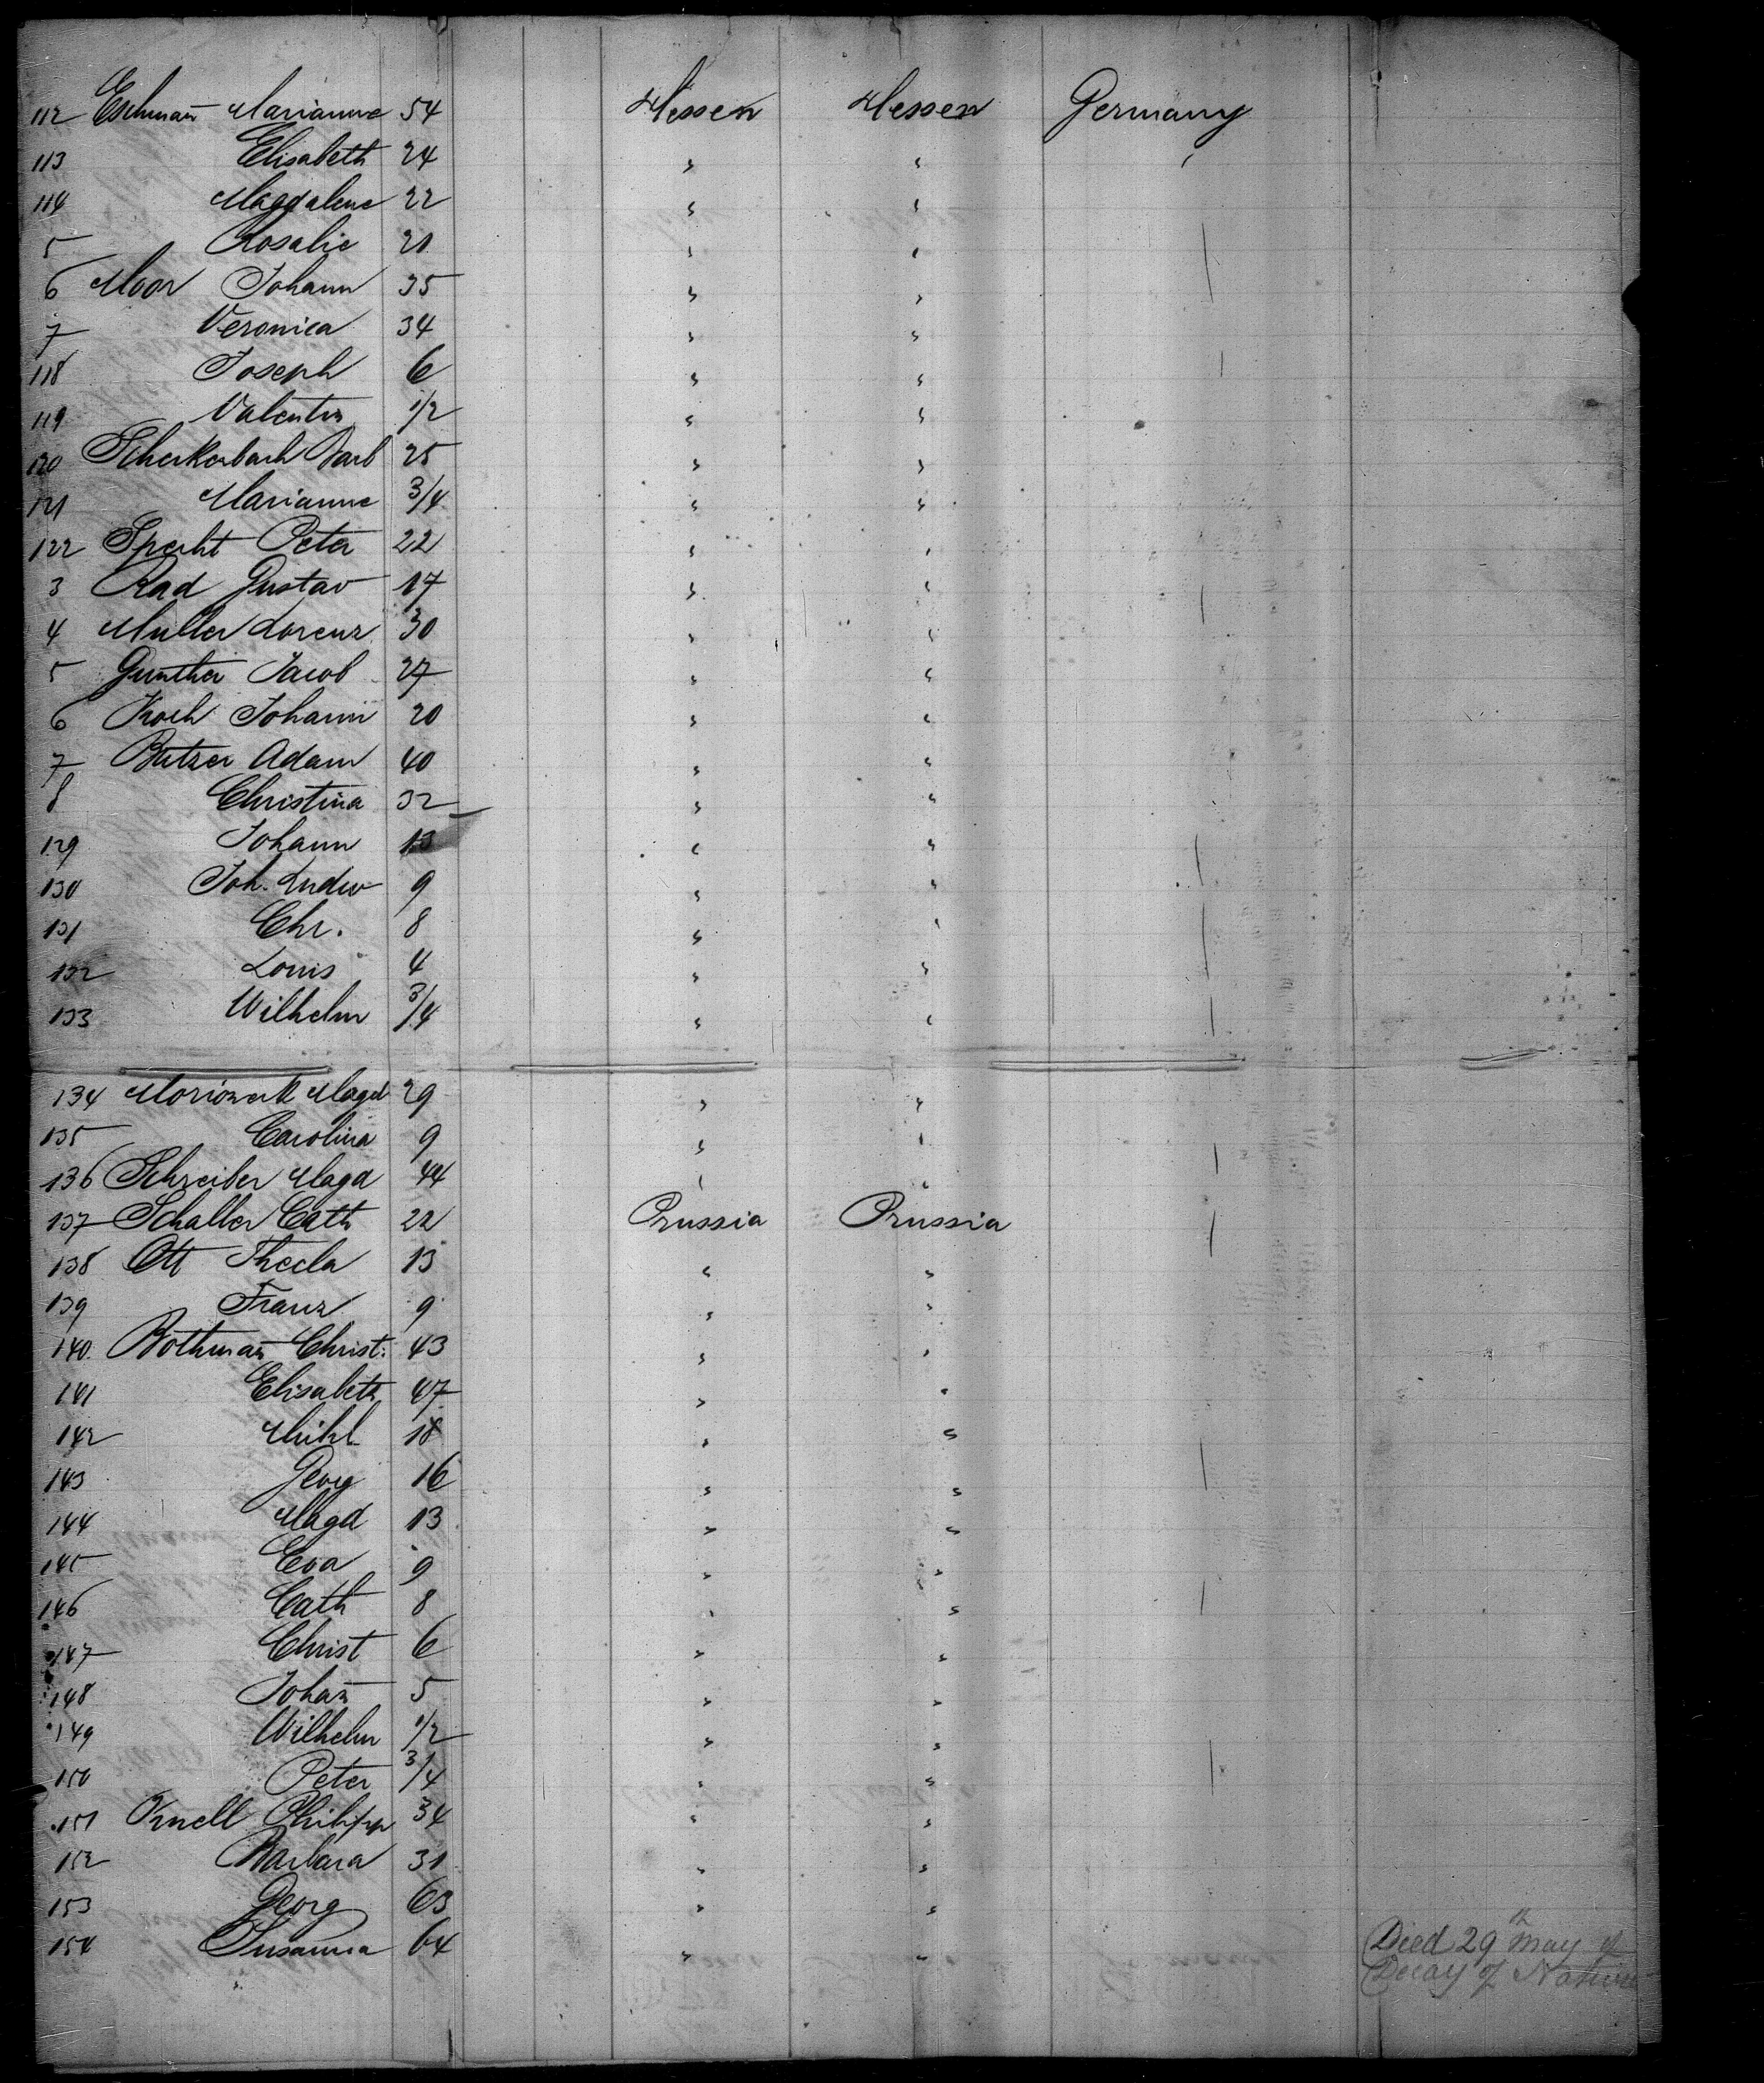 112 Eschman̄ Marianne 54 Hessen Hessen Germany
113 Elisabeth 24 " " "
114 Magdalene 22 " "
5 Rosalie 21 " "
6 Moor Johann 35 " "
7 Veronica 34 " "
118 Joseph 6 " "
119 Valentin 1/2 " "
120 Scherkerbach Barb 25 " "
121 Marianne 3/4 " "
122 Specht Peter 22 " "
3 Rad Gustav 17 " "
4 Muller Lorenz 30 " "
5 Gunther Jacob 27 " "
6 Koch Johann 20 " "
7 Butzer Adam 40 " "
8 Christina 32 " "
129 Johann 13 " "
130 Joh. Ludw 9 " "
131 Chr. 8 " "
132 Louis 4 " "
133 Wilhelm 3/4 " "
134 Magd 29 " "
135 Carolina 9 " "
136 Schreiber Magd 44 " "
137 Schaller Cath 22 Prussia Prussia
138 Ott Thecla 13 " "
139 Franz 9 " "
140. Bothman̄ Christ: 43 " "
141 Elisabeth 47 " "
142 Michl 18 " "
143 Georg 16 " "
144 Magd 13 " "
145 Eva 9 " "
146 Cath 8 " "
147 Christ 6 " "
148 Johan̄ 5 " "
149 Wilhelm 1/2 " "
150 Peter 3/4 " "
151 Knell Philipp 34 " "
152 Barbara 31 " "
153 Georg 63 " "
154 Susanna 64 " " Died 29th May of
Decay of Nature